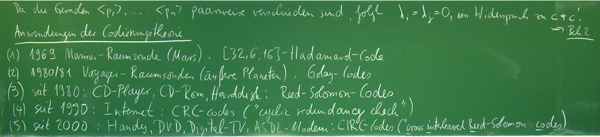 Da die Geraden <p₁>, ... <pₙ> paarweise verschieden sind, folgt λᵢ = λⱼ = 0, im Widerspruch zu c ≠ c'.
⇒ Beh. 2
Anwendungen der Codierungstheorie
(1) 1969 Mariner-Raumsonde (Mars). [32,6,16]-Hadamard-Code
(2) 1980/81 Voyager-Raumsonden (äußere Planeten). Golay-Codes
(3) seit 1980: CD-Player, CD-Rom, Harddisk: Reed-Solomon-Codes
(4) seit 1990: Internet: CRC-Codes ("cyclic redundancy check")
(5) seit 2000: Handy, DVD, Digital-TV, ASDL-Modem: CIRC-Codes ("cross interleaved Reed-Solomon codes)